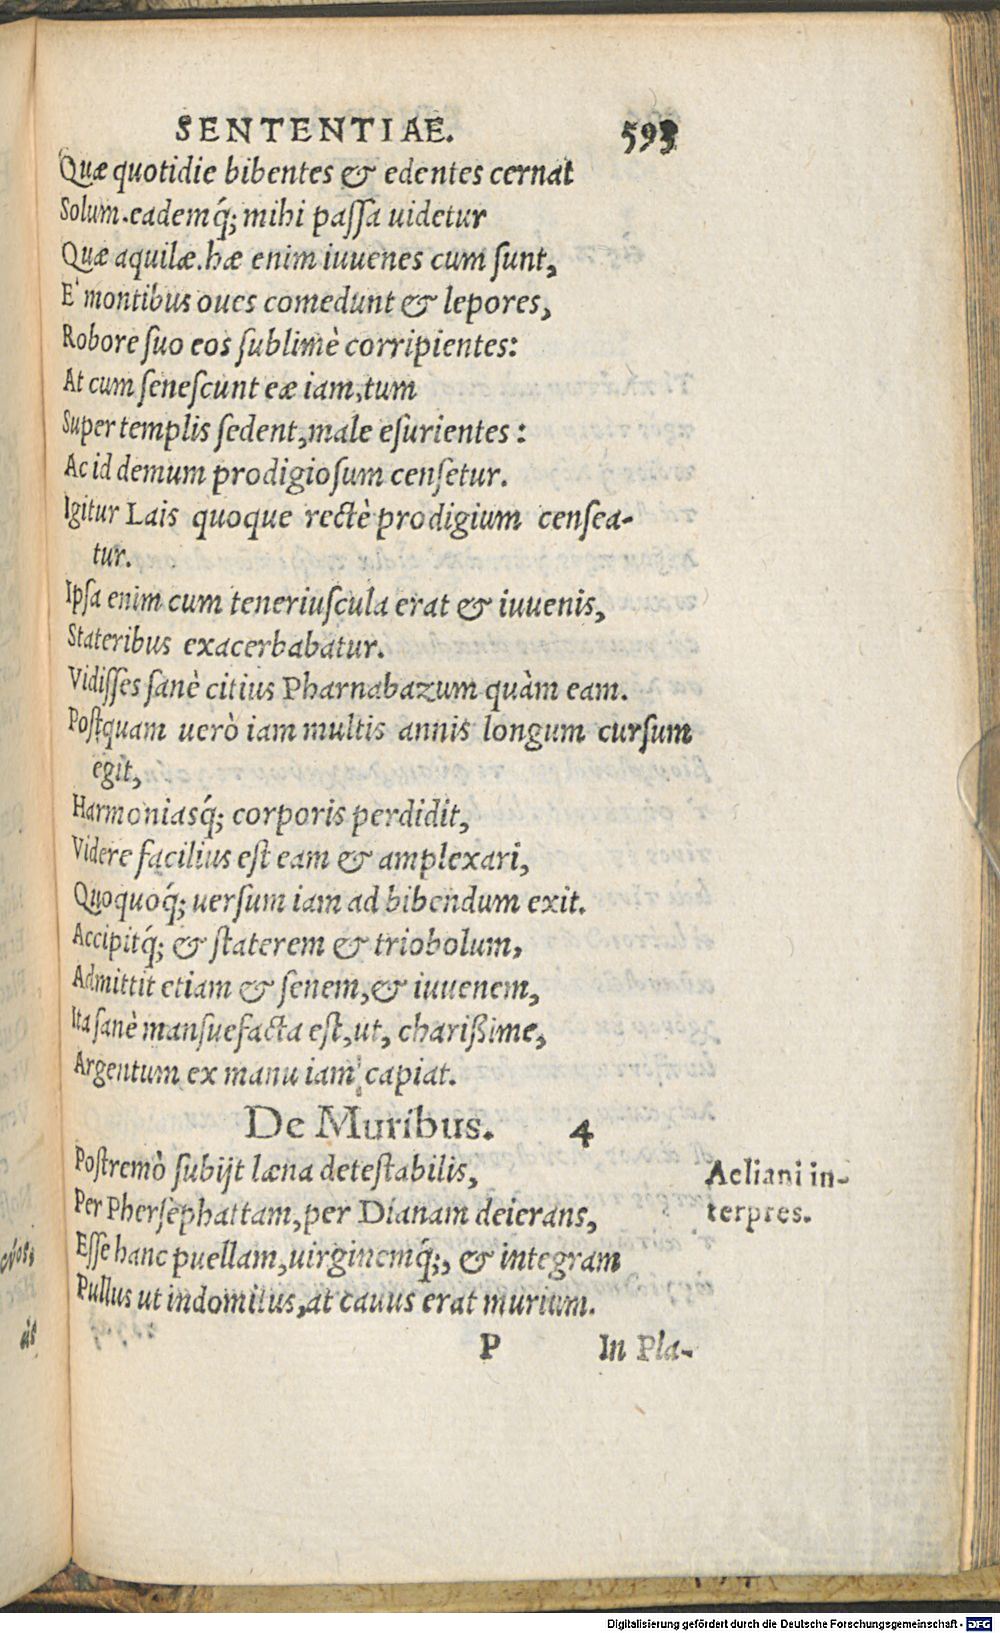 SENTENTIAE. 593
Quæ quotidie bibentes & edentes cernat
Solum.eademq́; mihi paſſa uidetur
Quæ aquilæ.hæ enim iuuenes cum ſunt,
E' montibus oues comedunt & lepores,
Robore ſuo eos ſublimè corripientes:
At cum ſeneſcunt eæ iam,tum
Super templis ſedent,male eſurientes :
Ac id demum prodigioſum cenſetur.
Igitur Lais quoque rectè prodigium cenſea-
tur.
Ipſa enim cum teneriuſcula erat & iuuenis,
Stateribus exacerbabatur.
Vidiſſes ſanè citius Pharnabazum quàm eam.
Poſtquam uerò iam multis annis longum curſum
egit,
Harmoniasq́; corporis perdidit,
Videre facilius eſt eam & amplexari,
Quoquoq́; uerſum iam ad bibendum exit.
Accipitq́; & ſtaterem & triobolum,
Admittit etiam & ſenem,& iuuenem,
Ita ſanè manſuefacta eſt,ut, charißime,
Argentum ex manu iam capiat.
De Muribus. 4
Poſtremò ſubijt læna deteſtabilis,
Per Pherſephattam,per Dianam deierans,
Eſſe hanc puellam,uirginemq́;, & integram
Pullus ut indomitus,at cauus erat murium.
Aeliani in-
terpres.
P In Pla-
Digitalisierung gefördert durch die Deutsche Forschungsgemeinschaft - DFG